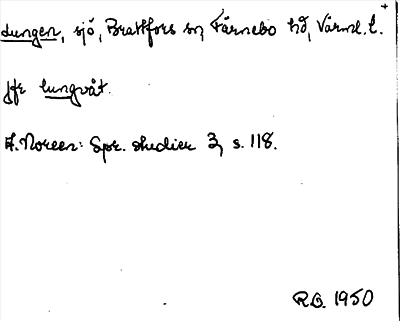 Lungen, sjö, Brattfors sn, Färnebo hd, Värml. l. +
jfr lungvåt.
A. Noreen: Spr. studier 3, s. 118.
R.G. 1950